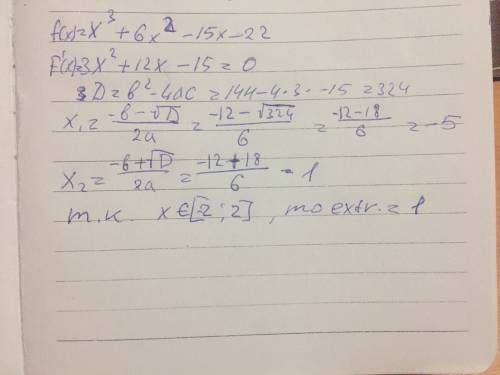 f(x)=x³+6x²-15x-22
f'(x)=3x²+12x-15=0
D=b²-4ac=144-4·3·-15=324
x₁=(-b-√D)/2a=(-12-√324)/6=(-12-18)/6=-5
x₂=(-b+√D)/2a=(-12+18)/6=1
т.к. x∈[-2;2], то extr.=1